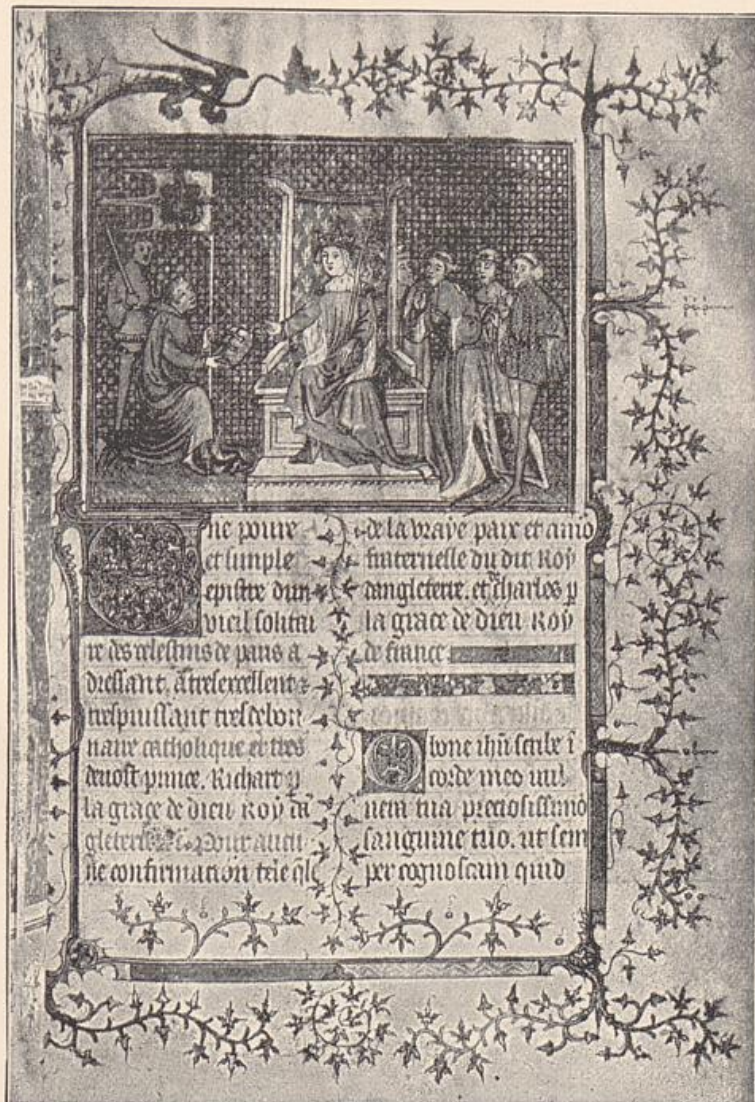 ne poure
et simple
epistre dun
vieil solitai
re des celestins de paris a
dressant. a tresexcellent
trespuissant tresdebon
naire catholique et tres
deuost prince. Richart p
la grace de dieu Roy dā
gleterre Pour aucu
ne confirmation tele q̄le
de la vraye paix et amo
fraternelle du dit Roy
dangleterre. et charles p
la grace de dieu Roy
de france
O bone ihū scribe ī
corde meo vul
nera tua preciosissimo
sanguine tuo. ut sem
per cognoscam quid